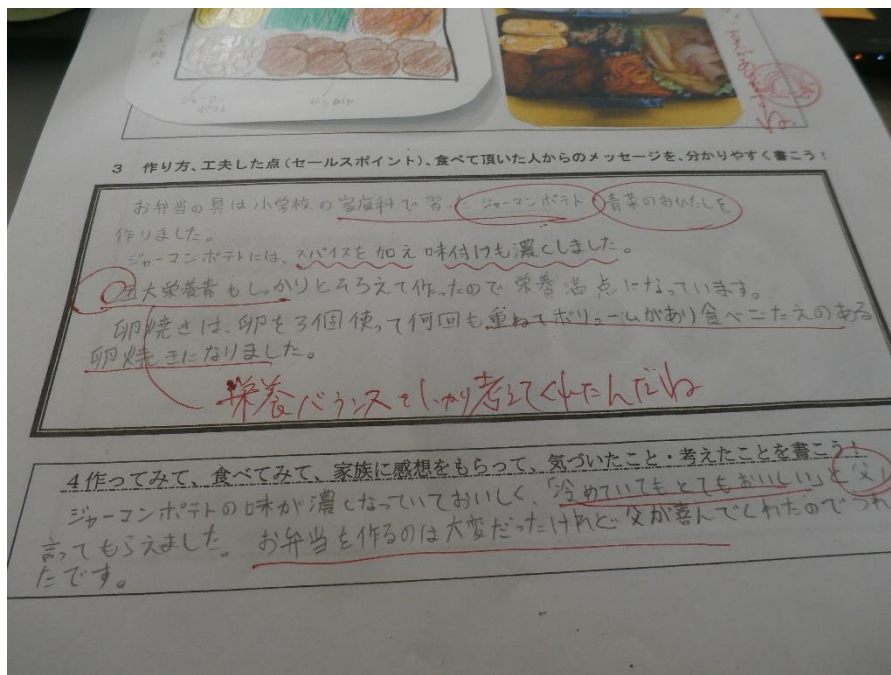 ジャーマン
ポテト
3 作り方、工夫した点(セールスポイント)、食べて頂いた人からのメッセージを、分かりやすく書こう!
お弁当の具は小学校の家庭科で習ったジャーマンポテト・青菜のおひたしを
作りました。
ジャーマンポテトには、スパイスを加え味付けも濃くしました。
五大栄養素もしっかりとそろえて作ったので栄養満点になっています。
卵焼きは、卵を3個使って何回も重ねてボリュームがあり食べごたえのある
卵焼きになりました。
栄養バランスをしっかり考えてくれたんだね
4作ってみて、食べてみて、家族に感想をもらって、気づいたこと・考えたことを書こう!
ジャーマンポテトの味が濃くなっていておいしく、「冷めていてもとてもおいしい」と父
言ってもらえました。お弁当を作るのは大変だったけれど父が喜んでくれたのでうれ
たです。